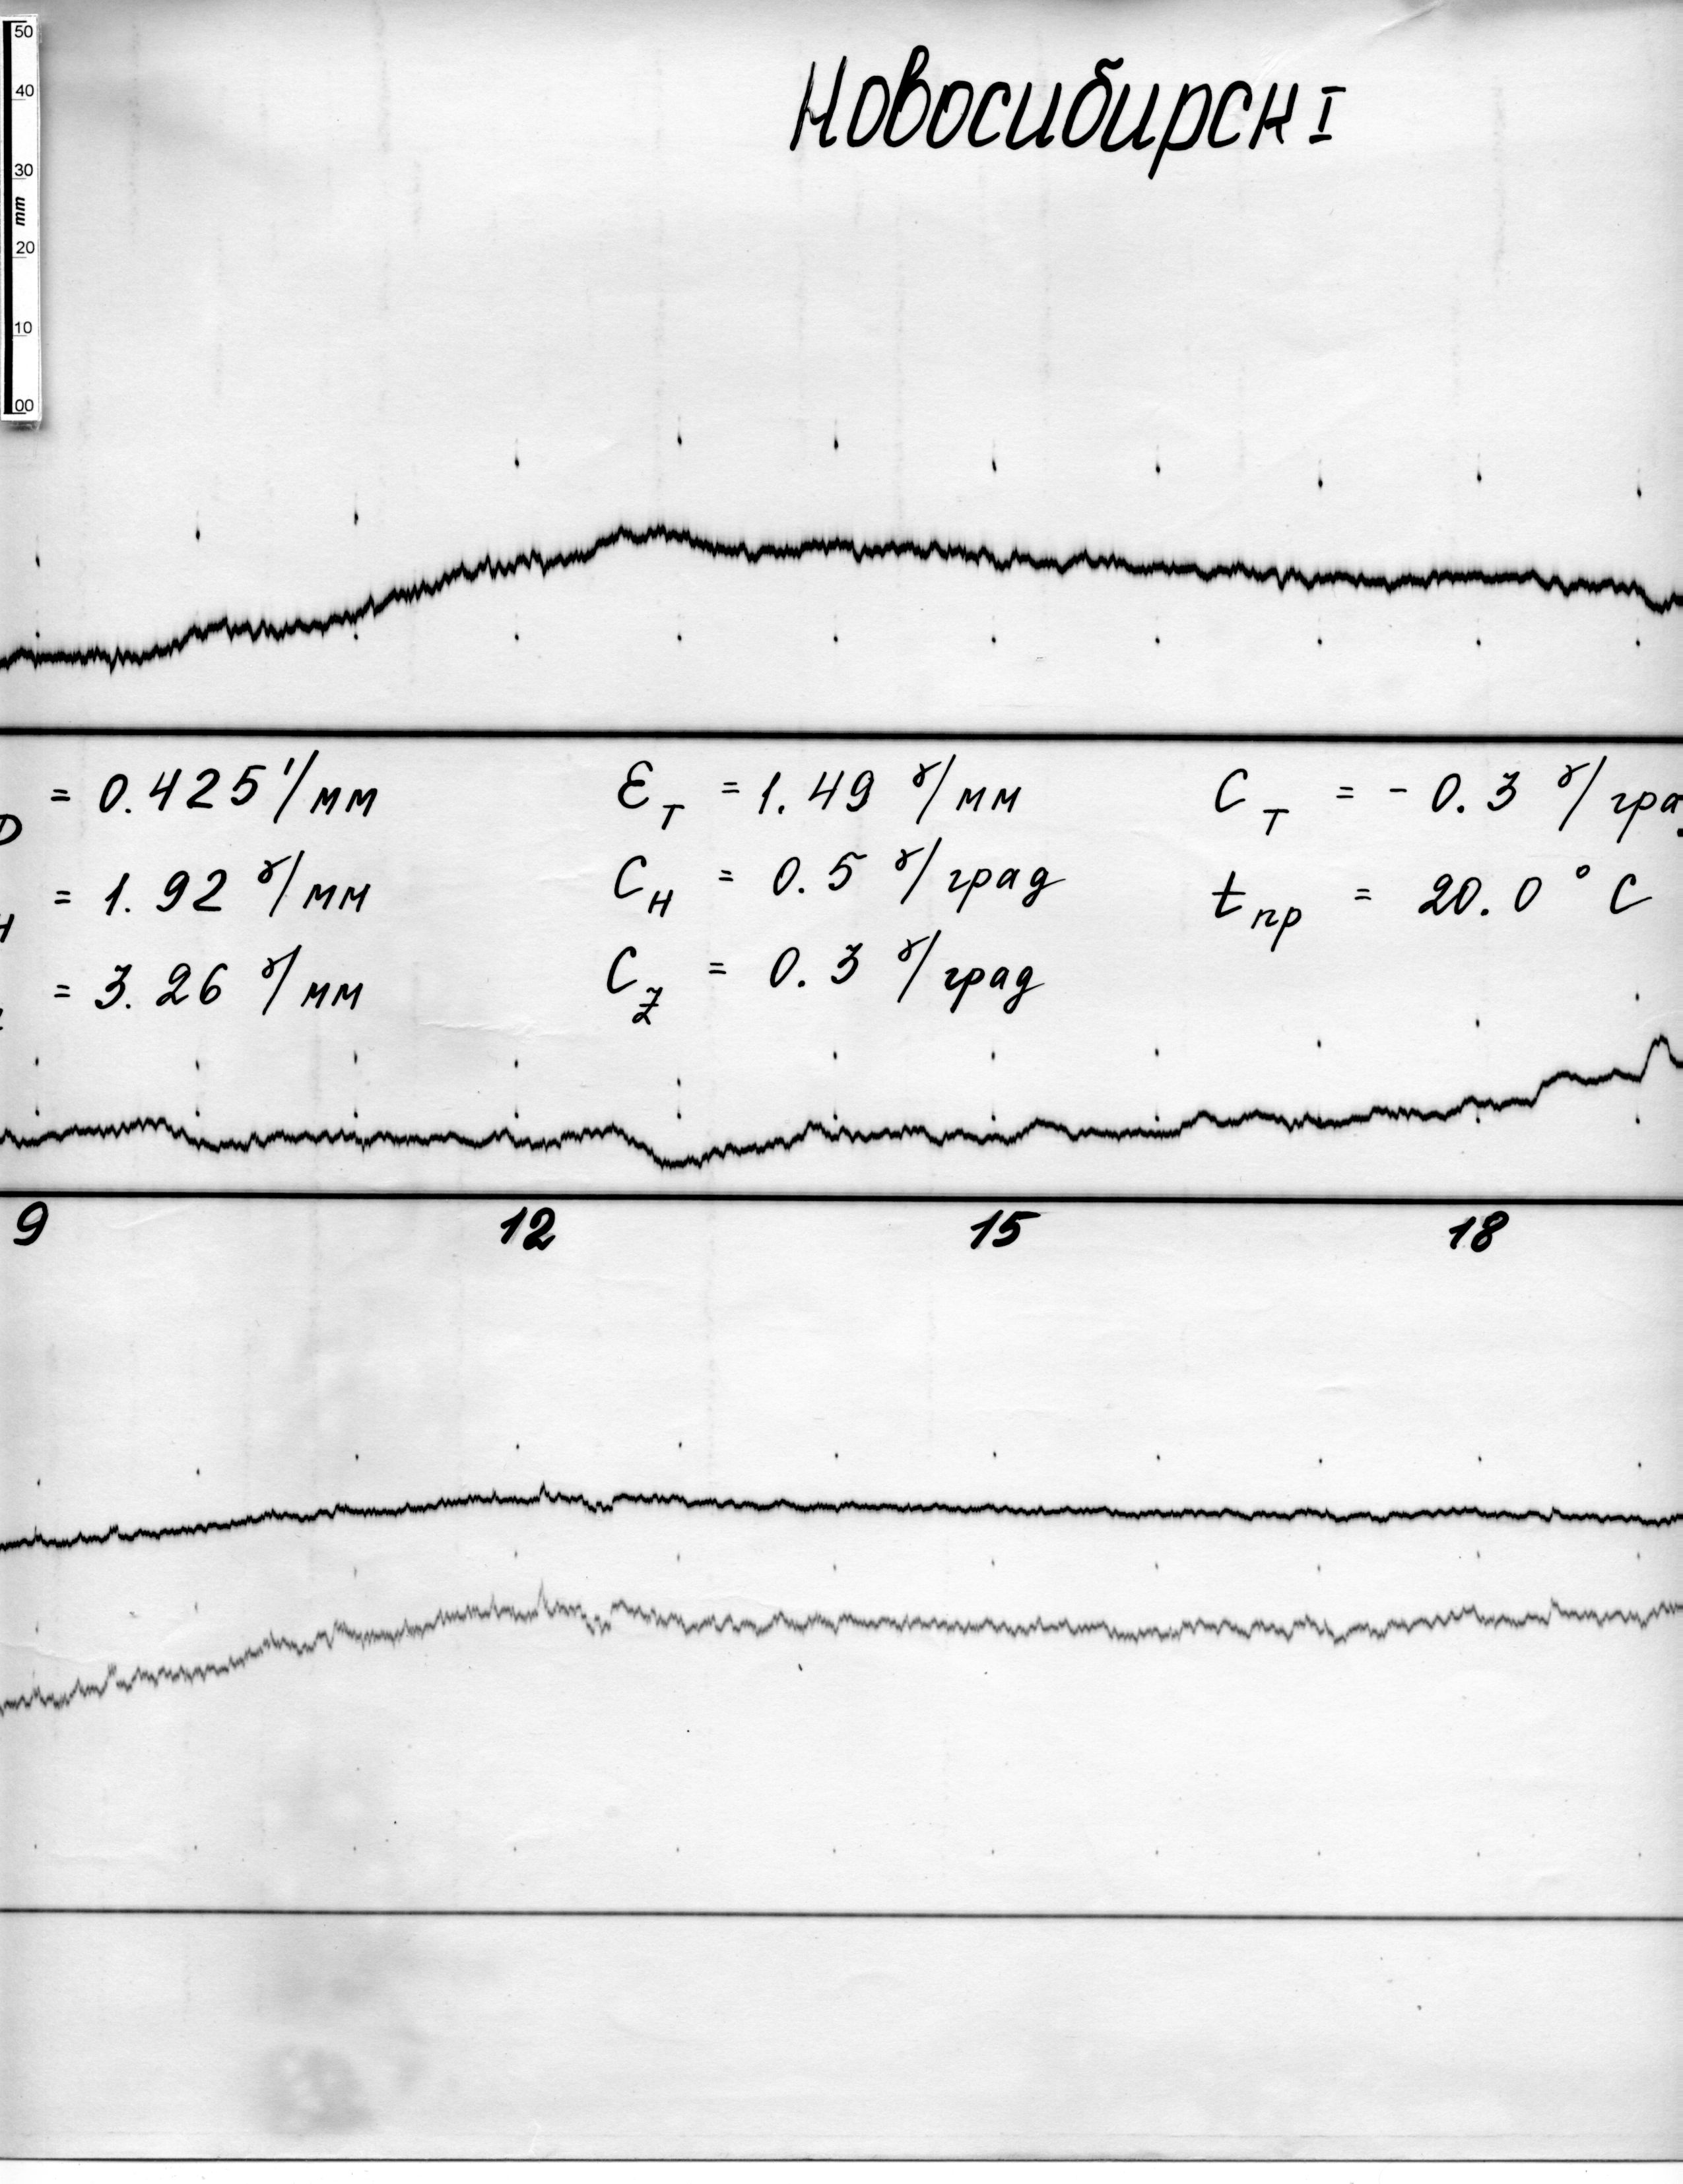 50
40
30
mm
20
10
00
Новосибирск I
D = 0.425'/мм
ε_T = 1.49 γ/мм
C_T = - 0.3 γ/гра
H = 1.92 γ/мм
C_H = 0.5 γ/град
t_пр = 20.0 °C
= 3.26 γ/мм
C_Z = 0.3 γ/град
9 12 15 18